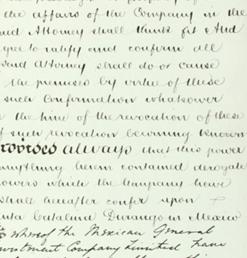 the affairs of the Company in the
said Attorney shall think fit & And
agree to ratify and confirm all
said Attorney shall do or cause
the premises by virtue of these
such Confirmation whatsoever
the time of the revocation of these
of such revocation becoming known
Provided always that this power
anything herein contained derogate
powers which the Company have
shall hereafter confer upon
Santa Catalina Durango in Mexico
whereof the Mexican General
Investment Company Limited have